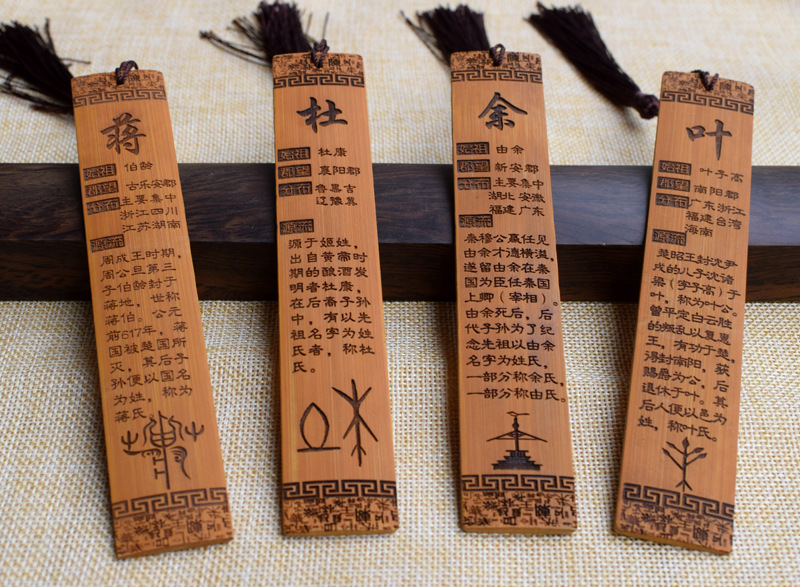 蒋
始祖 伯龄
郡望 古乐安郡
分布 主要集中
浙江四川
江苏湖南
姓氏源
周成王时期，
周公旦第三
子伯龄封于
蒋地，世称
蒋伯。公元
前617年，蒋
国被楚国所
灭，其后子
孙便以国名
为姓，称为
蒋氏。
杜
始祖 杜康
郡望 襄阳郡
分布 鲁黑吉
辽豫冀
源于姬姓，
出自黄帝时
期的酿酒发
明者杜康，
在后裔子孙
中，有以先
祖名字为姓
氏者，称杜
氏。
余
始祖 由余
郡望 新安郡
分布 主要集中
湖北安徽
福建广东
秦穆公嬴任见
由余才德横溢，
遂留由余在秦
国为臣任秦国
上卿（宰相）。
由余死后，后
代子孙为了纪
念先祖以由余
名字为姓氏，
一部分称余氏，
一部分称由氏。
叶
始祖 叶子高
郡望 南阳郡
分布 广东浙江
福建台湾
海南
楚昭王封沈尹
戌的儿子沈诸
梁（字子高）于
叶，称为叶公。
曾平定白云胜
的叛乱以复惠
王，有功于楚，
得封南阳，获
赐爵为公，后
退休于叶。其
后人便以邑为
姓，称叶氏。